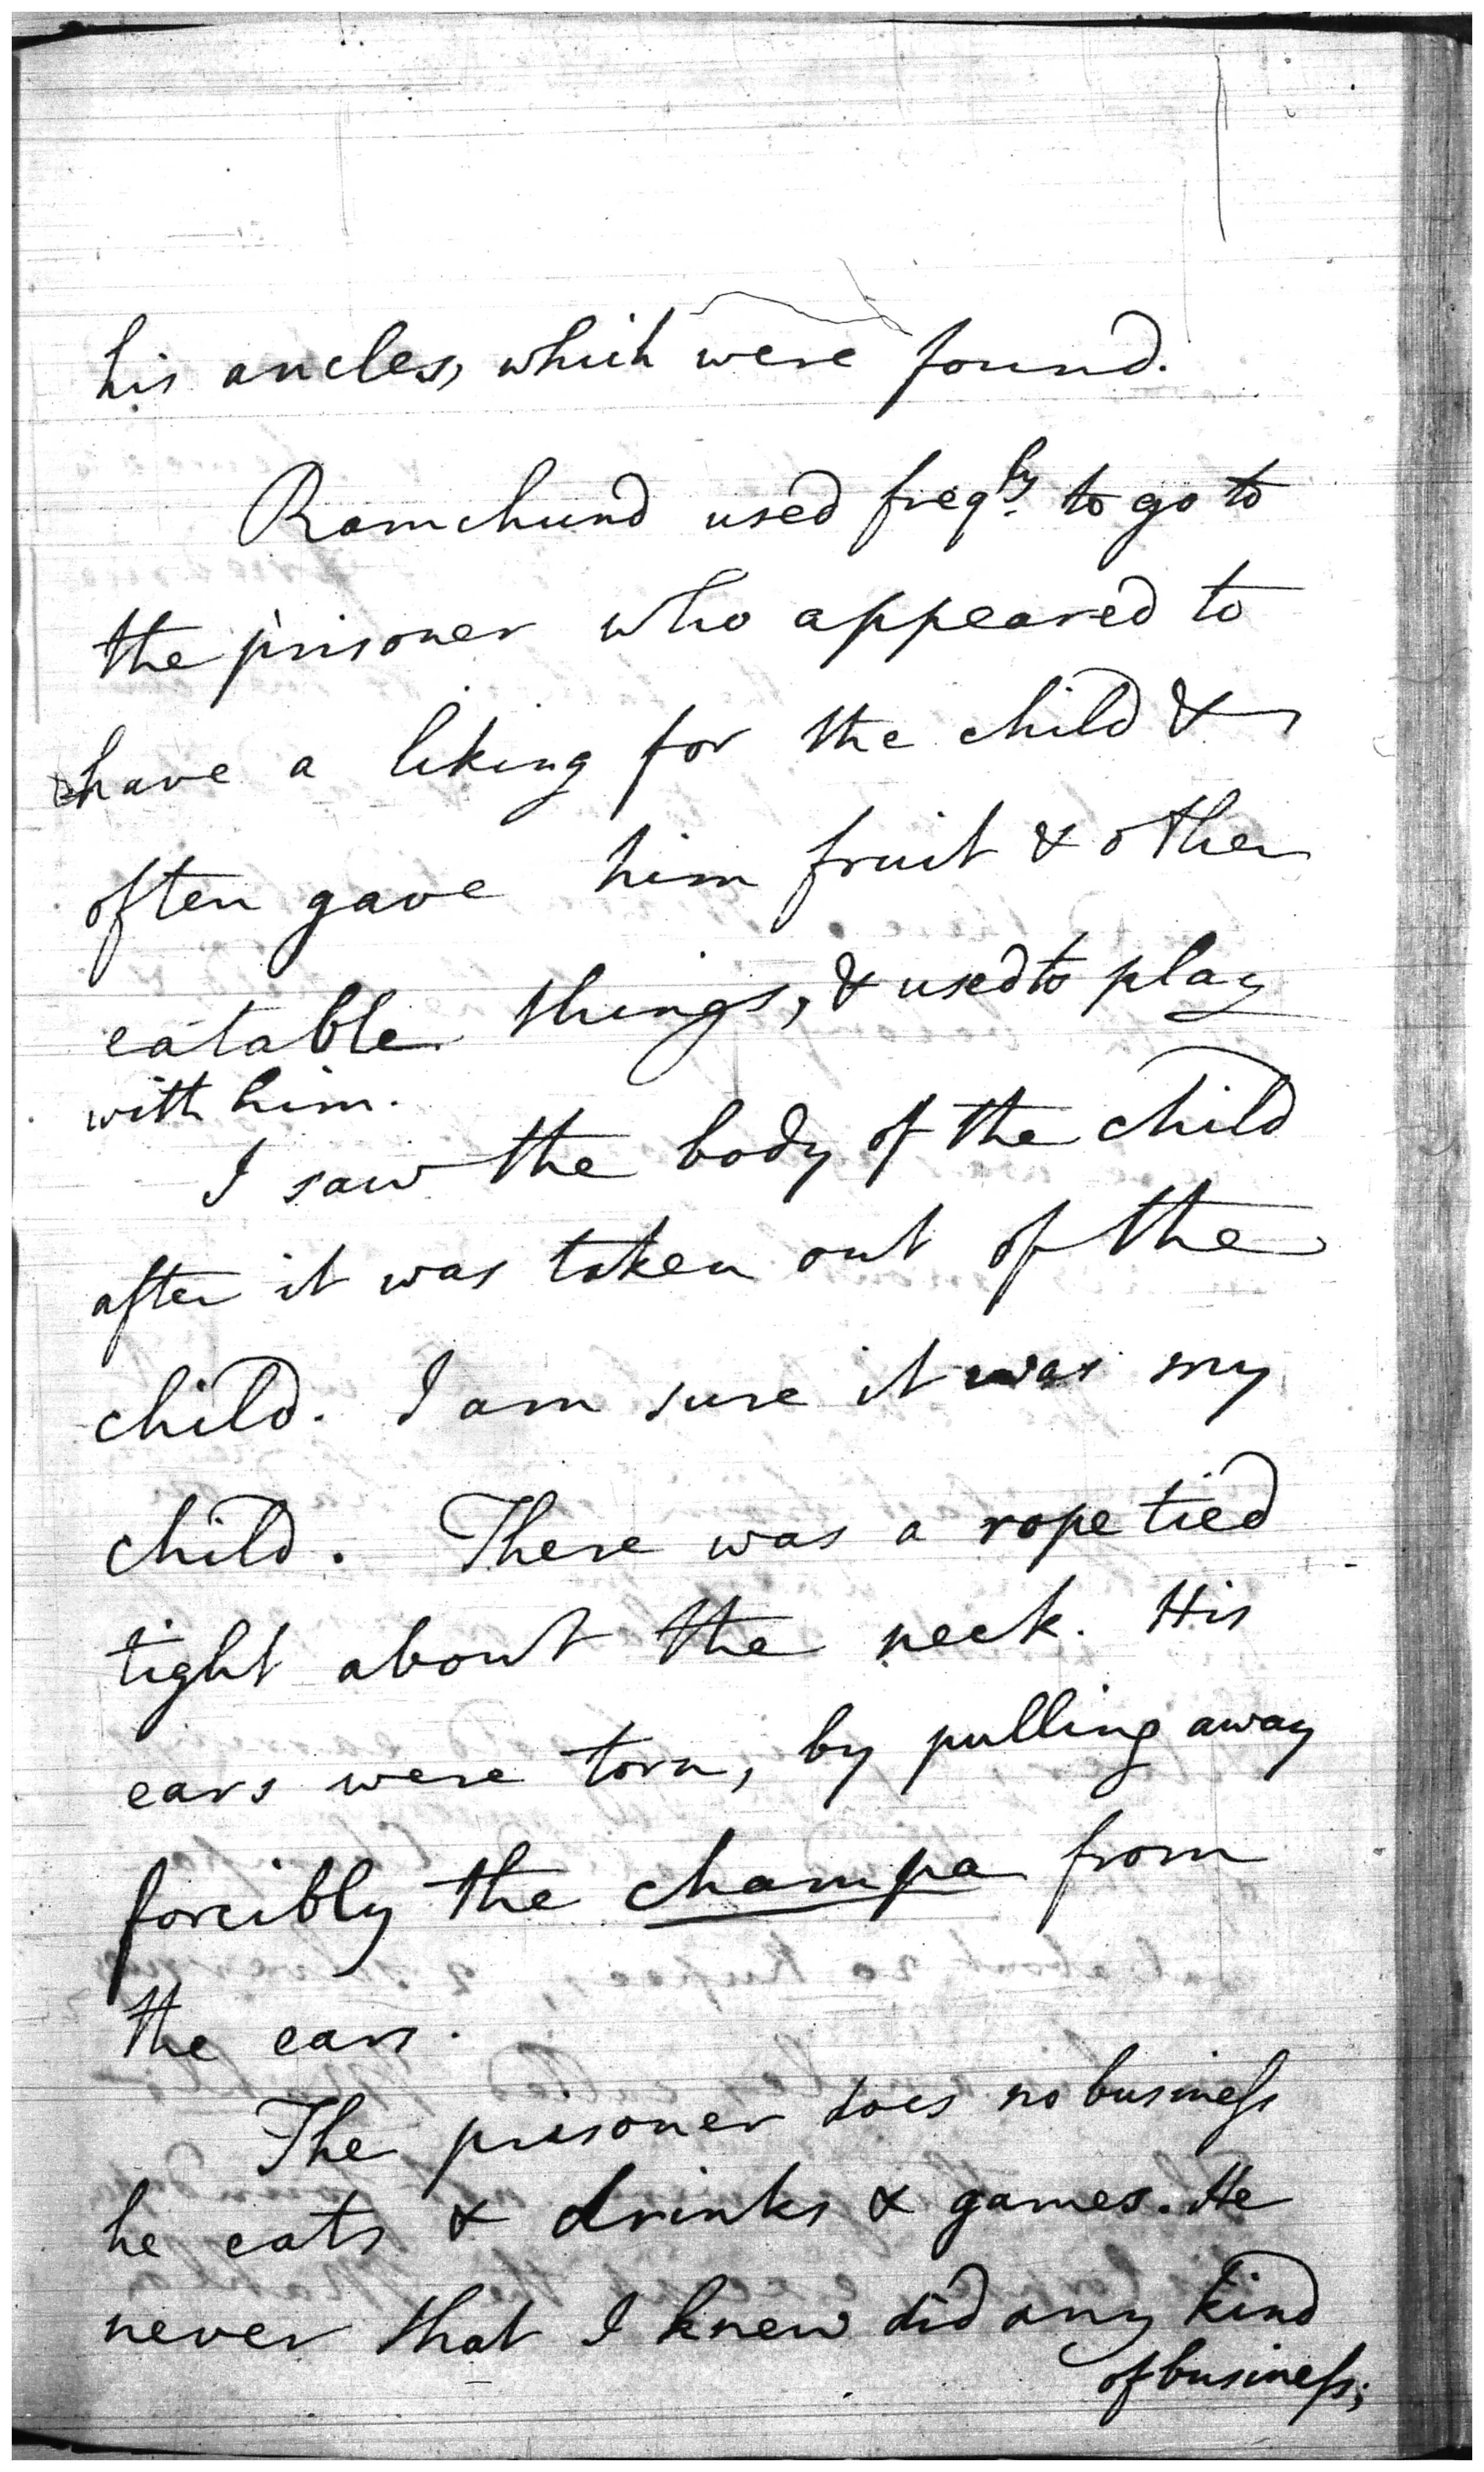 his ancles, which were found.
Ramchund used freq.ly to go to
the prisoner who appeared to
have a liking for the child &
often gave him fruit & other
eatable things, & used to play
with him.
I saw the body of the child
after it was taken out of the
child. I am sure it was my
child. There was a rope tied
tight about the neck. His
ears were torn, by pulling away
forcibly the champa from
the ears.
The prisoner does no business
he eats & drinks & games. He
never that I knew did any kind
of business;